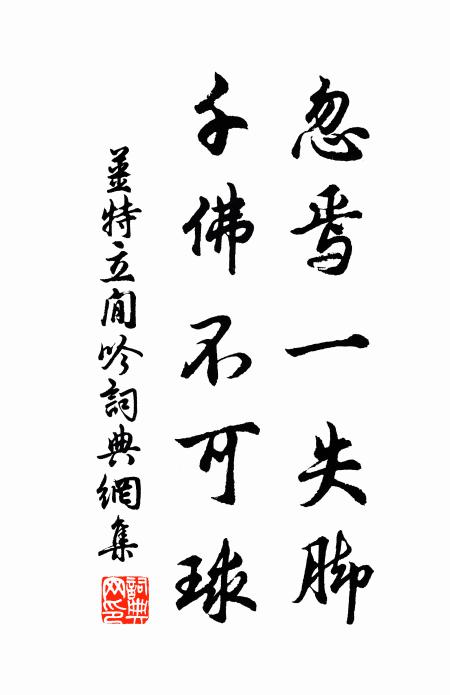 忽焉一失脚
千佛不可球
薑特立閒吟詞典網集
詞典
网印